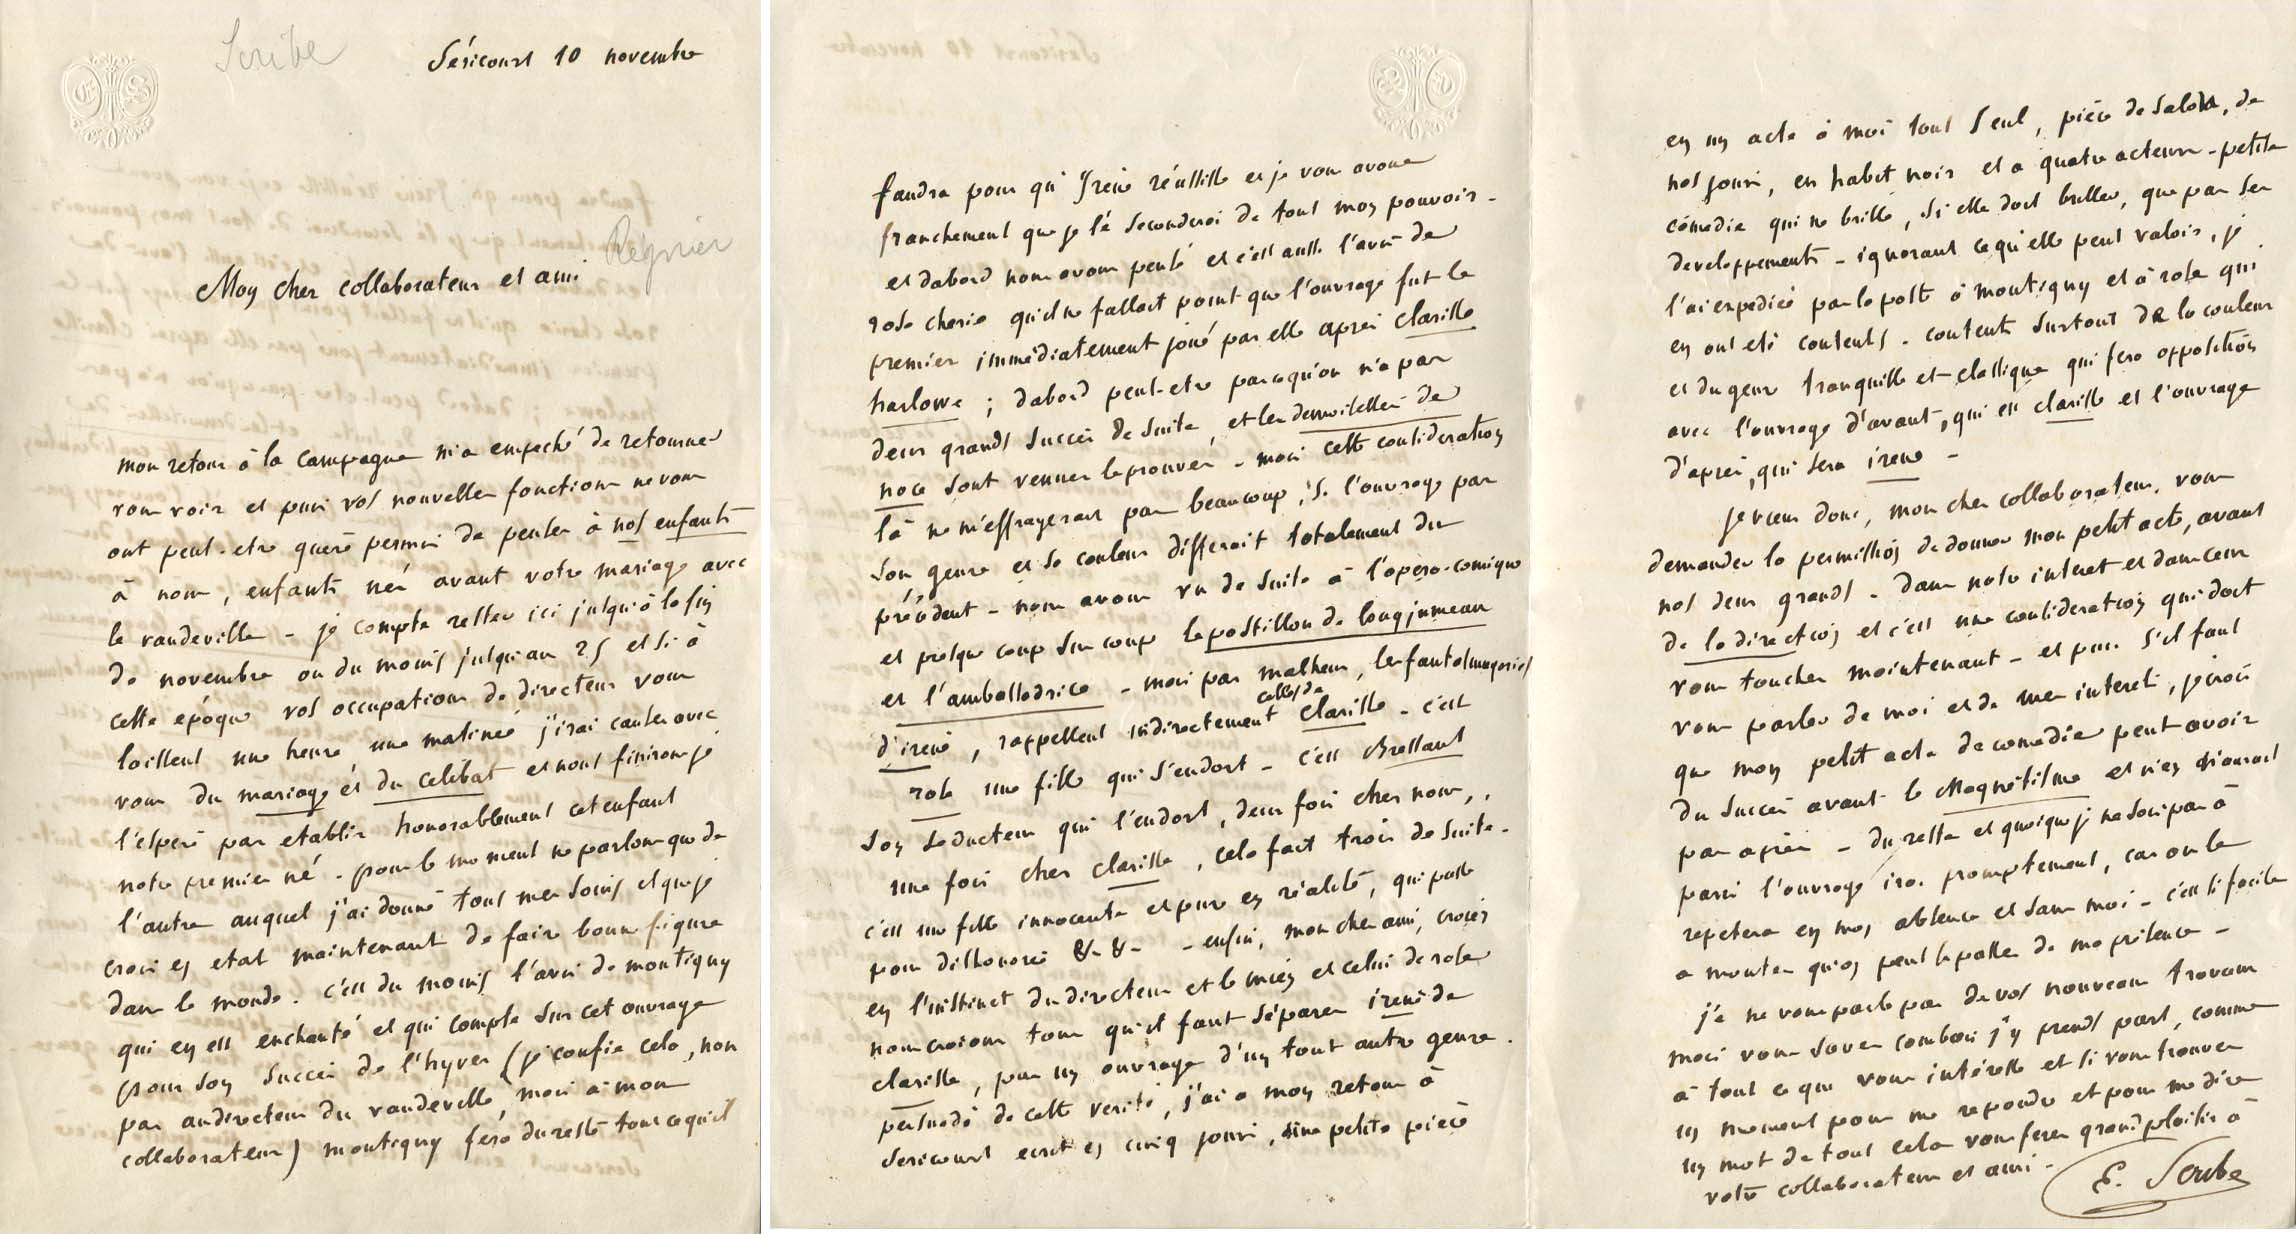 Scribe
Séricourt 10 novembre
E S
Regnier
Mon cher collaborateur et ami
mon retour à la campagne m'a empeché de retourner
vous voir et puis vos nouvelles fonctions ne vous
ont peut-etre guère permis de penser à nos enfants
à nous, enfants nés avant votre mariage avec
le vaudeville - je compte rester ici jusqu'à la fin
de novembre ou du moins jusqu'au 25 et si à
cette epoque vos occupations de directeur vous
laissent une heure une matinée j'irai causer avec
vous du mariage et du celibat et nous finirons je
l'espere par etablir honorablement cet enfant
notre premier né - pour le moment ne parlons que de
l'autre auquel j'ai donné tous mes soins et que je
crois en etat maintenant de faire bonne figure
dans le monde. c'est du moins l'avis de montigny
qui en est enchanté et qui compte sur cet ouvrage
pour son succès de l'hyver (je confie cela, non
pas au directeur du vaudeville, mais à mon
collaborateur) montigny fera du reste tout ce qu'il
faudra pour qu'Irene réussisse et je vous avoue
franchement que je le seconderai de tout mon pouvoir -
et d'abord nous avons pensé et c'est aussi l'avis de
rose cherie qu'il ne fallait point que l'ouvrage fut le
premier immédiatement joué par elle après clarisse
harlowe ; d'abord peut-etre parcequ'on n'a pas
deux grands succès de suite, et les demoiselles de
noce sont venues le prouver - mais cette consideration
là ne m'effrayerait pas beaucoup, si l'ouvrage par
son genre et sa couleur differait totalement du
précédent - nous avons vu de suite à l'opera-comique
et presque coup sur coup le postillon de longjumeau
et l'ambassadrice - mais par malheur, les fantasmagories
d'irene, rappellent indirectement celles de clarisse - c'est
rose une fille qui s'endort - c'est Bressant
son seducteur qui l'endort, deux fois chez nous,
une fois chez clarisse, cela fait trois de suite -
c'est une fille innocente et pure en réalité, qui passe
pour déshonorée &-&- - enfin, mon cher ami, croiez
en l'instinct du directeur et le mien et celui de rose
nous croions tous qu'il faut séparer irene de
clarisse, par un ouvrage d'un tout autre genre.
persuadé de cette verité, j'ai a mon retour à
sericourt ecrit en cinq jours, une petite pièce
en un acte à moi tout seul, pièce de salon, de
nos jours, en habit noir et a quatre acteurs - petite
comédie qui ne brille, si elle doit briller, que par ses
developpements - ignorant ce qu'elle peut valoir, je
l'ai expediée par la poste à montigny et à rose qui
en ont eté contents - contents surtout de la couleur
et du genre tranquille et classique qui fera opposition
avec l'ouvrage d'avant, qui est clarisse et l'ouvrage
d'après, qui sera irene -
je viens donc, mon cher collaborateur, vous
demander la permission de donner mon petit acte, avant
nos deux grands - dans notre interet et dans ceux
de la direction et c'est une consideration qui doit
vous toucher maintenant - et puis s'il faut
vous parler de moi et de mes interets, je crois
que mon petit acte de comédie peut avoir
du succès avant le Magnétisme et n'en aurait
pas après - du reste et quoique je ne sois pas à
paris l'ouvrage ira promptement, car on le
repetera en mon absence et sans moi - c'est si facile
a monter qu'on peut se passer de ma présence -
je ne vous parle pas de vos nouveaux travaux
mais vous savez combien j'y prends part, comme
à tout ce qui vous intéresse et si vous trouvez
un moment pour me repondre et pour me dire
un mot de tout cela vous ferez grand plaisir à
votre collaborateur et ami -
E. Scribe